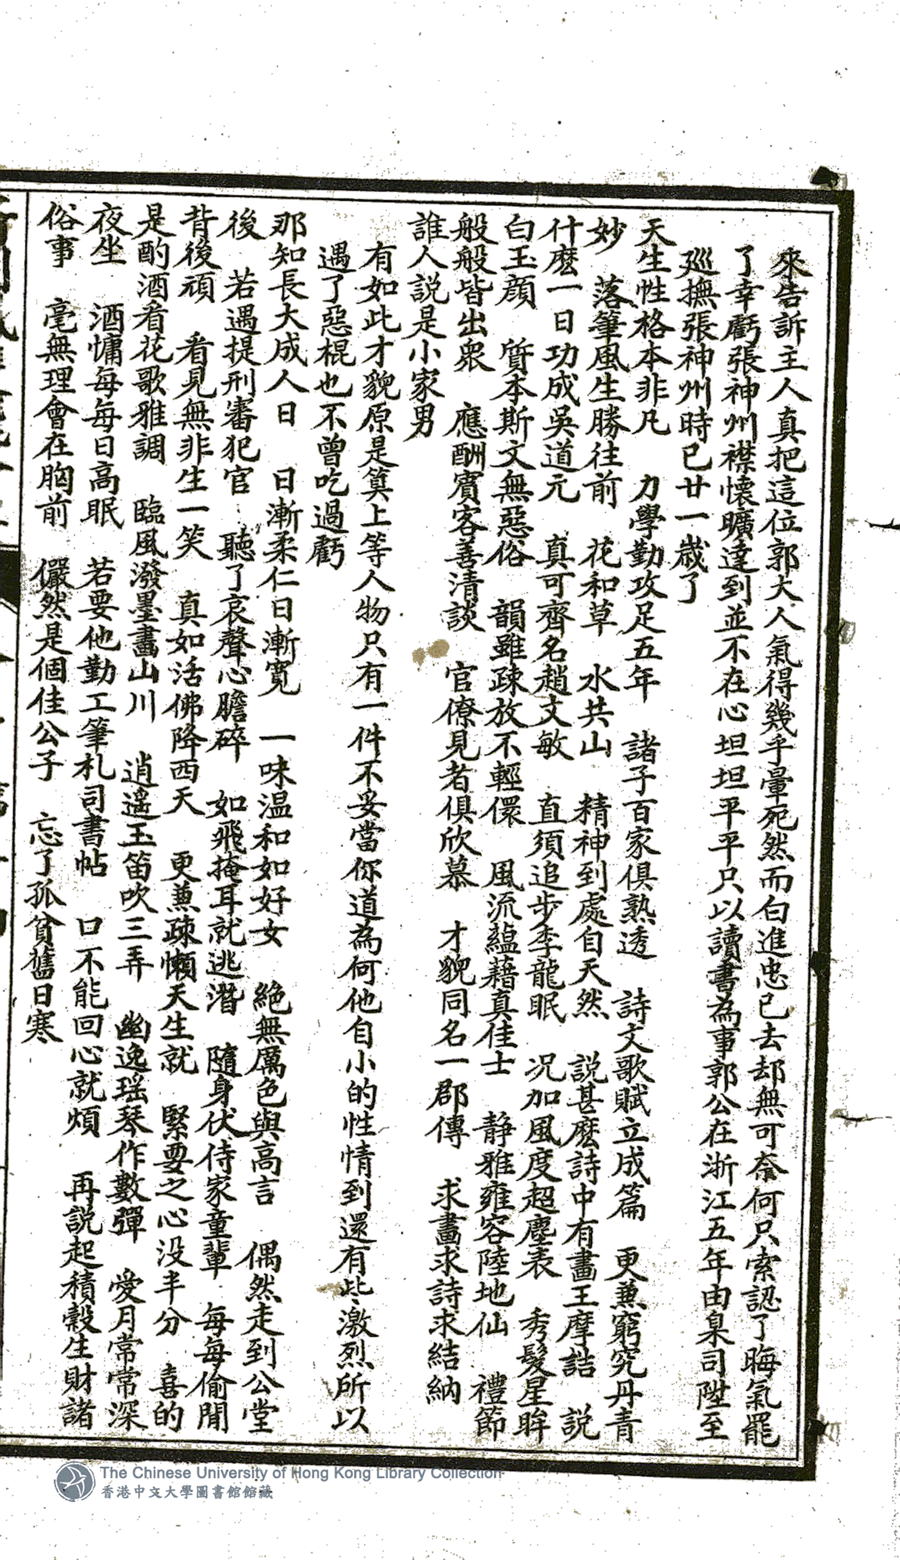 來告訴主人真把這位郭大人氣得幾乎暈死然而白進忠已去却無可奈何只索認了晦氣罷
了幸虧張神州襟懷曠達到並不在心坦坦平平只以讀書為事郭公在浙江五年由臬司陞至
廵撫張神州時已廿一歲了
天生性格本非凡 力學勤攻足五年 諸子百家俱熟透 詩文歌賦立成篇 更兼窮究丹青
妙 落筆風生勝往前 花和草 水共山 精神到處自天然 説甚麽詩中有畵王摩詰 説
什麽一日功成吳道元 真可齊名趙文敏 直須追步李龍眠 况加風度超塵表 秀髮星眸
白玉顔 質本斯文無惡俗 韻雖疎放不輕儇 風流蘊藉真佳士 静雅雍容陸地仙 禮節
般般皆出衆 應酬賓客善清談 官僚見者俱欣慕 才貌同名一郡傳 求畵求詩求結納
誰人説是小家男
有如此才貌原是算上等人物只有一件不妥當你道為何他自小的性情到還有此激烈所以
遇了惡棍也不曾吃過虧
那知長大成人日 日漸柔仁日漸寛 一味温和如好女 絶無厲色與高言 偶然走到公堂
後 若遇提刑審犯官 聽了哀聲心膽碎 如飛掩耳就逃潛 隨身伏侍家童輩 每每偷閒
背後頑 看見無非生一笑 真如活佛降西天 更兼疎懶天生就 緊要之心没半分 喜的
是酌酒看花歌雅調 臨風潑墨畵山川 逍遥玉笛吹三弄 幽逸瑶琴作數彈 愛月常常深
夜坐 酒慵每每日高眠 若要他勤工筆札司書帖 口不能回心就煩 再説起積穀生財諸
俗事 毫無理會在胸前 儼然是個佳公子 忘了孤貧舊日寒
The Chinese University of Hong Kong Library Collection
香港中文大學圖書館館藏